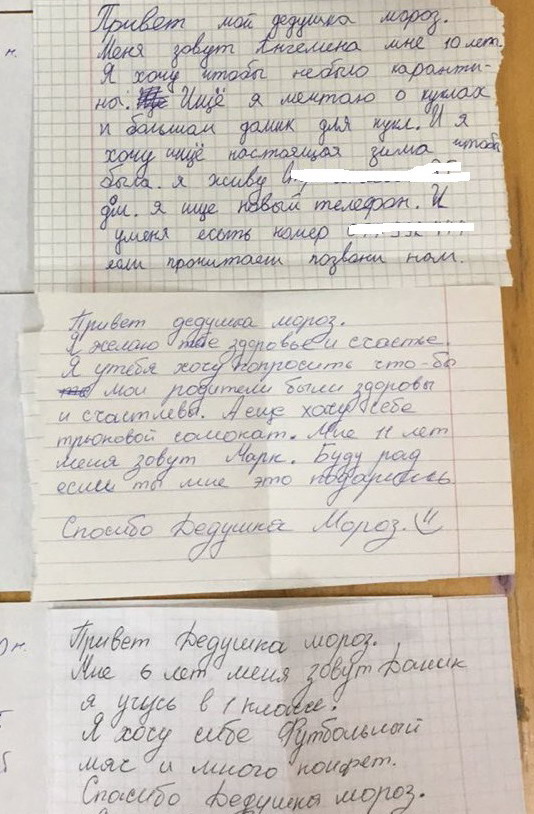 Привет мой дедушка мороз.
Меня зовут Ангелина мне 10 лет.
Я хочу чтобы небыло каранти-
на. Ищё я мечтаю о куклах
и большой домик для кукл. И я
хочу ищё настоящая зима чтобы
была. я живу
дм. я ище новый телефон. И
уменя есоть номер
если прочитаеш позвони нам.
Привет дедушка мороз.
Я желаю тебе здоровье и счастье.
Я утебя хочу попросить что-бы
мои родители были здоровы
и счастлевы. А еще хочу себе
трюковой самокат. Мне 11 лет
меня зовут Марк. Буду рад
если ты мне это подаришь.
Спосибо Дедушка Мороз.
Привет Дедушка мороз.
Мне 6 лет меня зовут Даник
я учусь в 1 классе.
Я хочу себе Футбольный
мяч и много конфет.
Спосибо Дедушка мороз.